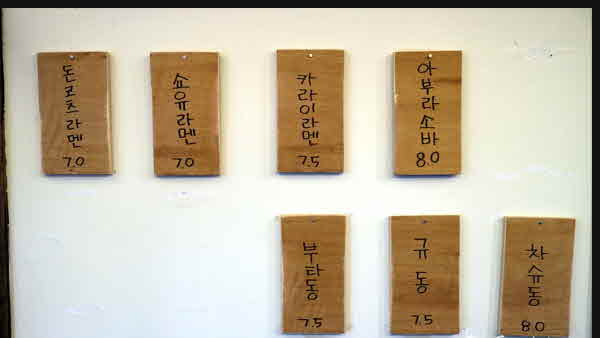 돈코츠라멘
7.0
쇼유라멘
7.0
카라이라멘
7.5
아부라소바
8.0
부타동
7.5
규동
7.5
차슈동
8.0